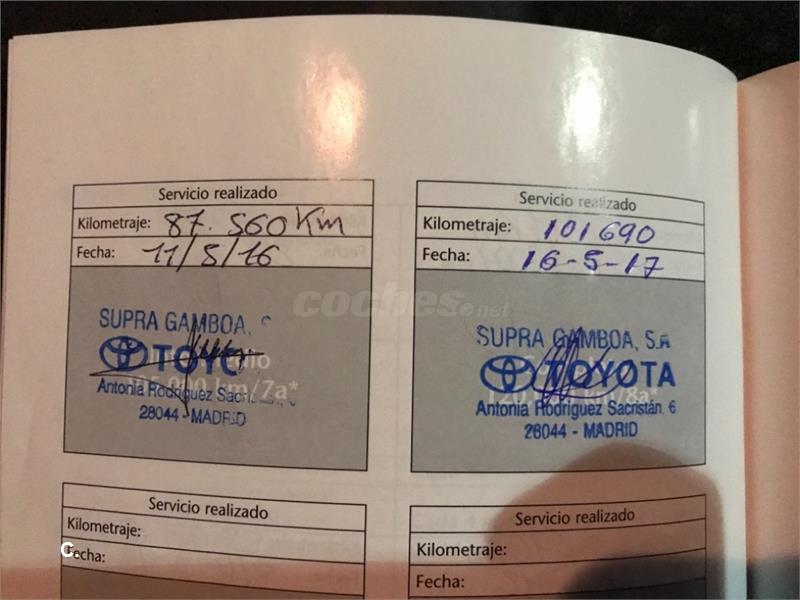 Servicio realizado
Kilometraje: 87.560 Km
Fecha: 11/5/16
SUPRA GAMBOA, S
TOYO
Antonia Rodríguez Sacris
28044 - MADRID
000 km/7a*
Servicio realizado
Kilometraje: 101690
Fecha: 16-5-17
SUPRA GAMBOA, S.A
TOYOTA
Antonia Rodríguez Sacristán, 6
28044 - MADRID
120 km/8a*
coches.net
Servicio realizado
Kilometraje:
Fecha:
Servicio realizado
Kilometraje:
Fecha:
C.